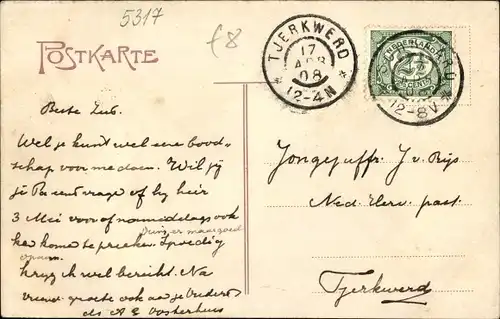 5317
f8
POSTKARTE
TJERKWERD
17
APR
08
12-4N
NEDERLAND
2½
CENT
12-8V
Beste Zus.
Wel je kunt wel eene bood-
schap voor me doen. Wil jij
je Pa eens vragen of hij hier
3 Mei voor of namiddags ook
kan komen te preeken. Spoedig
krijg ik wel bericht. Na
vriend. groete ook aan je ouders
ds A E Oosterhuis
Jongejuffr. J v. Rijs
Ned. Herv. past.
Tjerkwerd